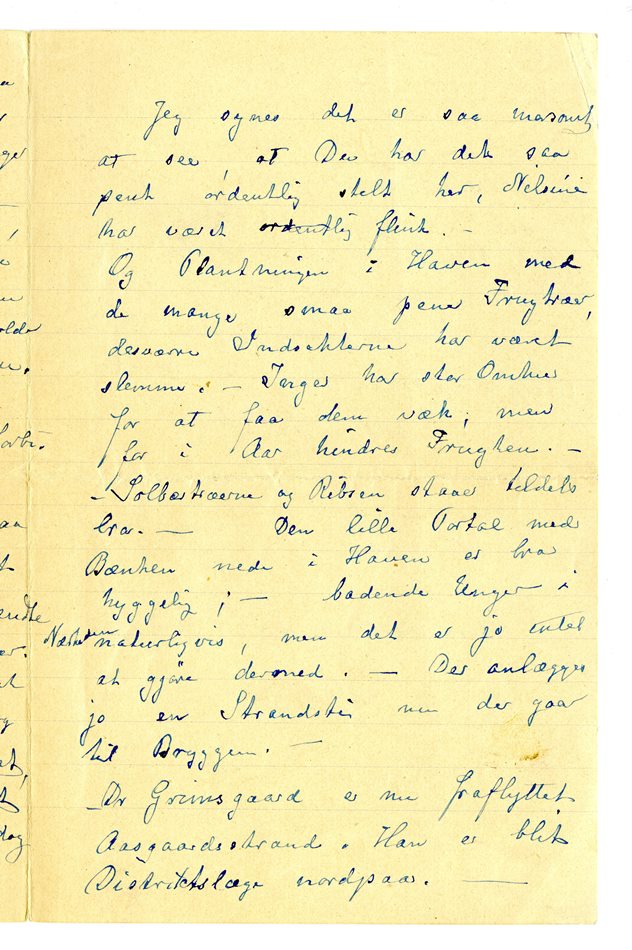 Jeg synes det er saa morsomt
at see at De har det saa
pent ordentlig stelt her, Nelsine
har været ordentlig flink. –
Og Plantningen i Haven med
de mange smaa pene Frugtræer,
desværre Indsekterne har været
slemme. – Inger har stor Omhu
for at faa dem væk, men
for i Aar hindres Frugten. –
– Solbærtræerne og Ribsen staaer tildels
bra. – Den lille Portal med
Bænken nede i Haven er bra
hyggelig; – badende Unger i
Nærheden naturligvis, men det er jo intet
at gjöre dermed. – Der anlægges
jo en Strandsti nu der gaar
til Bryggen. –
Dr Grimsgaard er nu fraflyttet
Aasgaardsstrand. Han er blit
Distriktslæge nordpaa. –